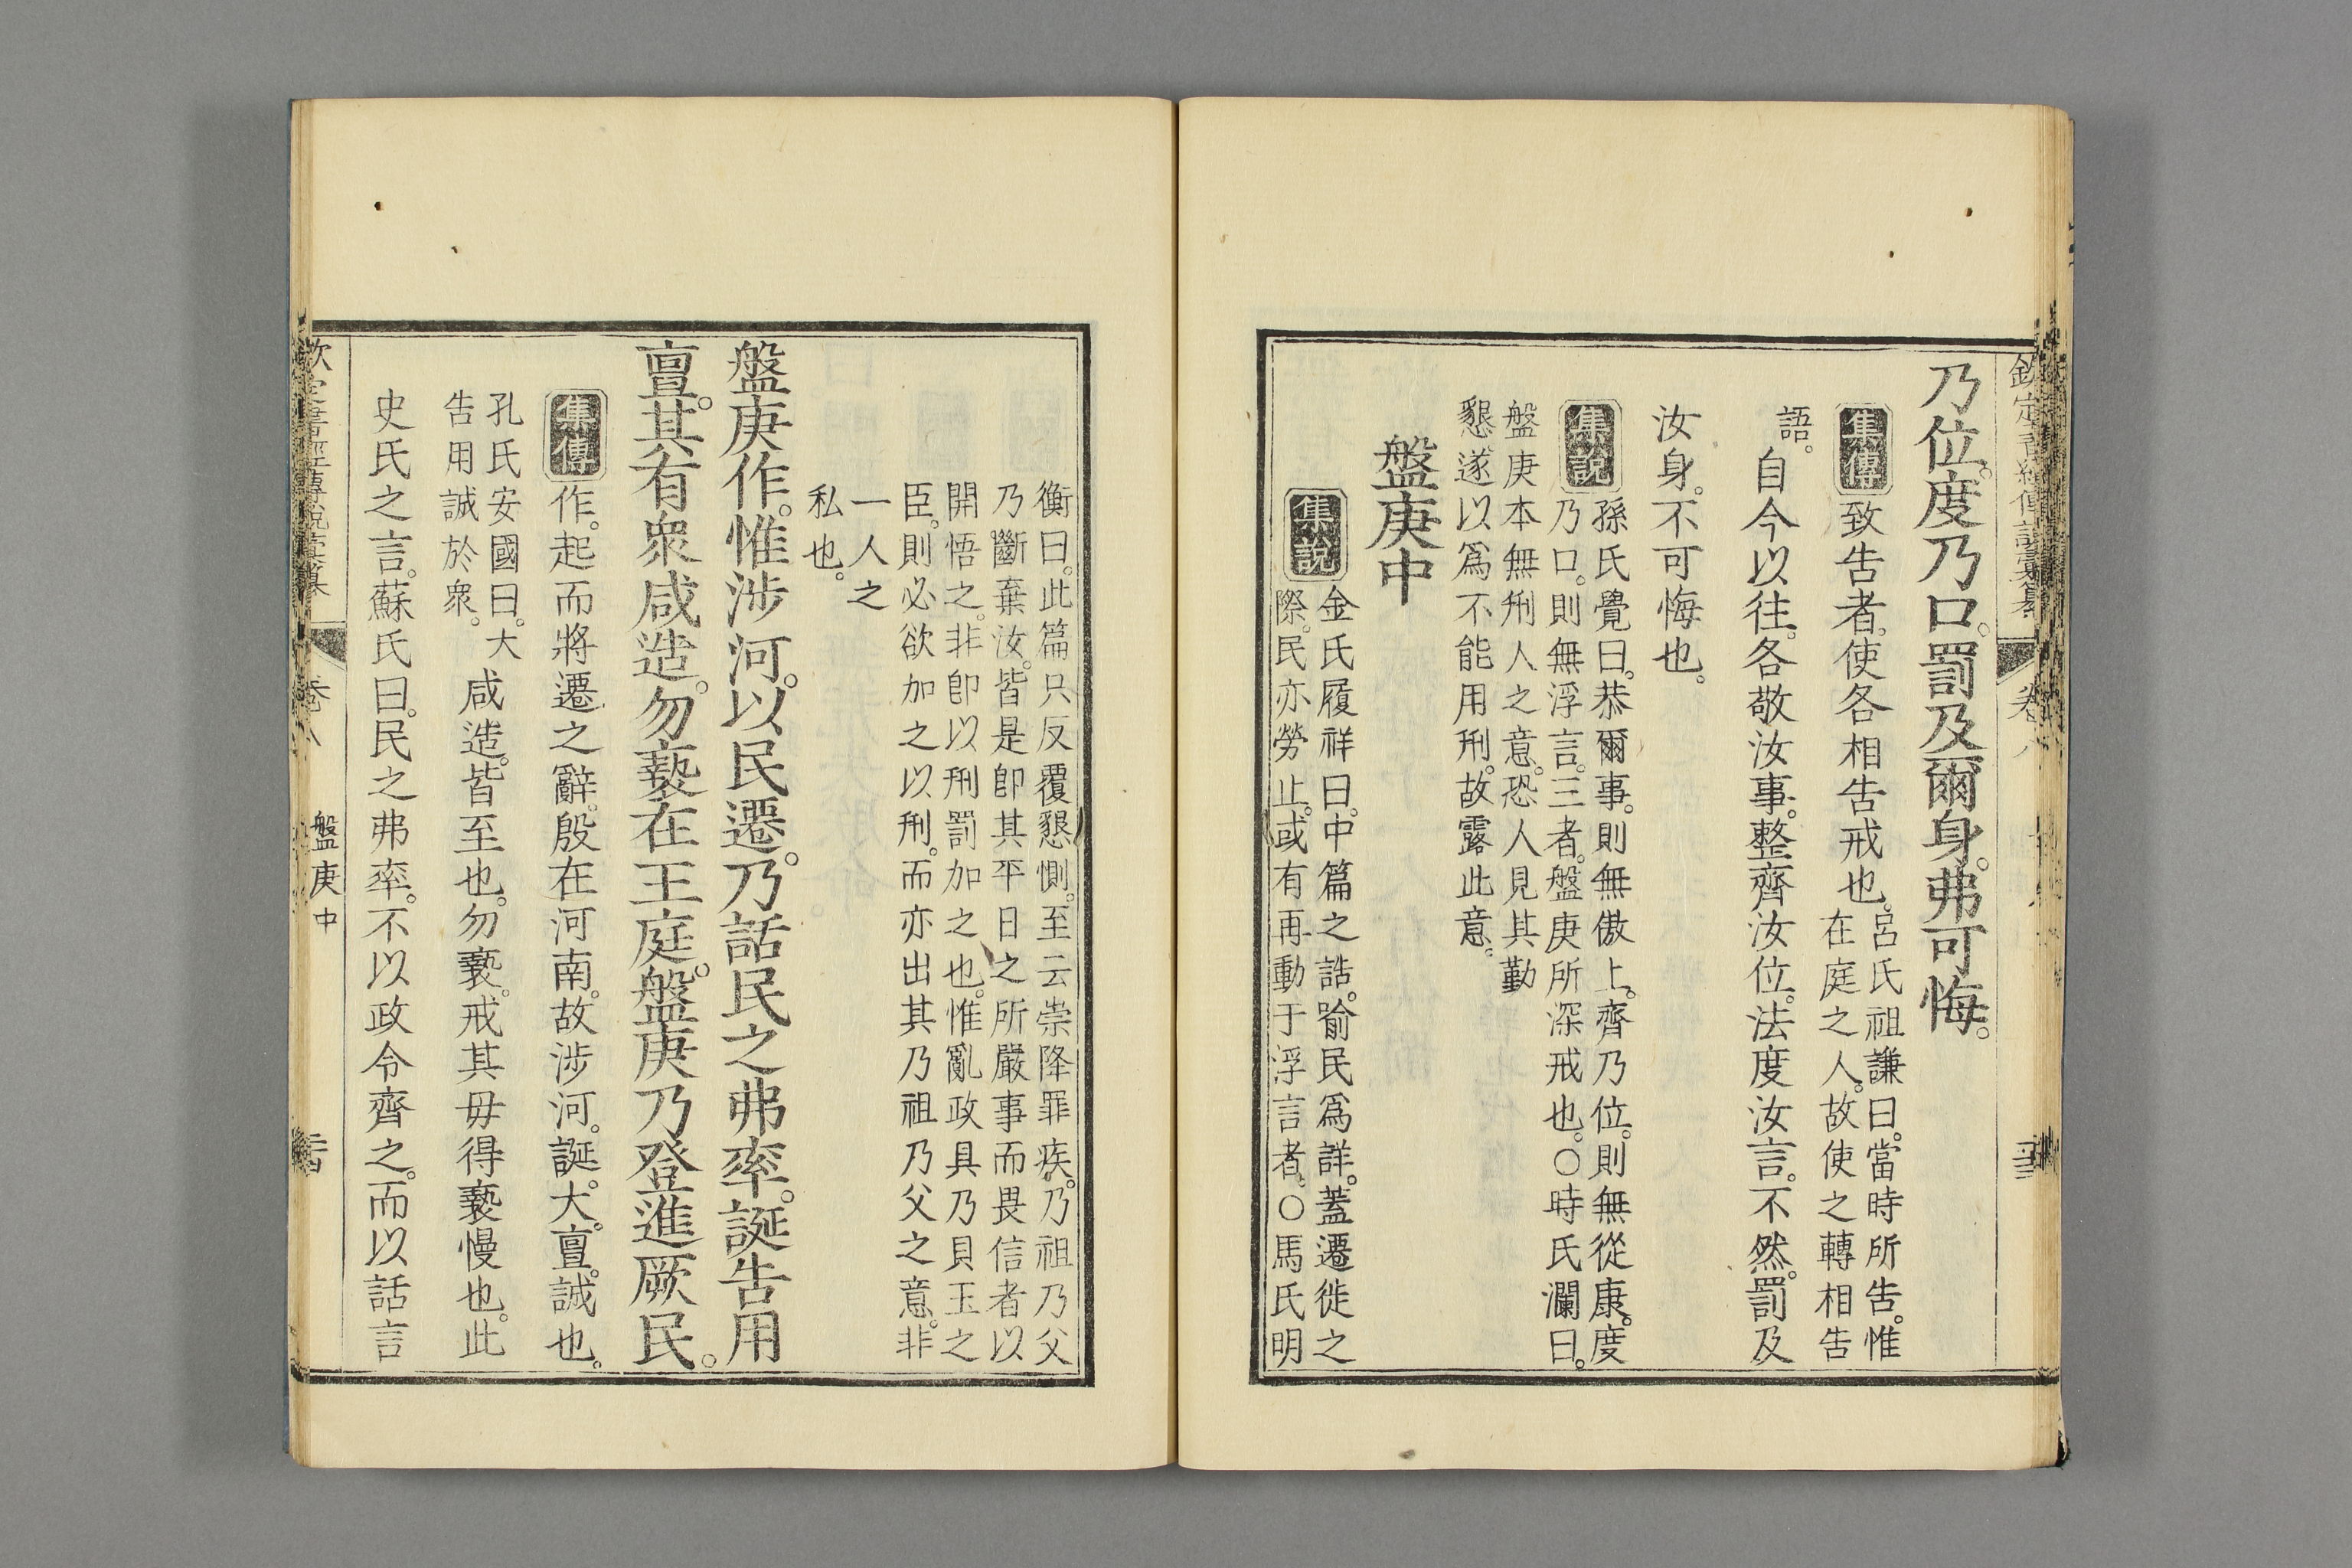 欽定書經傳說彙纂 卷八
乃位。度乃口。罰及爾身。弗可悔。
集傳
致告者。使各相告戒也。
呂氏祖謙曰。當時所告。惟
在庭之人。故使之轉相告
語。
自今以往。各敬汝事。整齊汝位。法度汝言。不然。罰及
汝身。不可悔也。
集說
孫氏覺曰。恭爾事。則無傲上。齊乃位。則無從康。度
乃口。則無浮言。三者。盤庚所深戒也。○時氏瀾曰。
盤庚本無刑人之意。恐人見其勤
懇。遂以爲不能用刑。故露此意。
盤庚中
集說
金氏履祥曰。中篇之誥。喻民爲詳。蓋遷徙之
際。民亦勞止。或有再動于浮言者。○馬氏明
衡曰。此篇只反覆懇惻。至云崇降罪疾。乃祖乃父
乃斷棄汝。皆是卽其平日之所嚴事而畏信者以
開悟之。非卽以刑罰加之也。惟亂政具乃貝玉之
臣。則必欲加之以刑。而亦出其乃祖乃父之意。非
一人之
私也。
盤庚作。惟涉河。以民遷。乃話民之弗率。誕告用
亶。其有衆咸造。勿褻在王庭。盤庚乃登進厥民。
集傳
作。起而將遷之辭。殷在河南。故涉河。誕。大。亶。誠也。
孔氏安國曰。大
告用誠於衆。
咸造。皆至也。勿褻。戒其毋得褻慢也。此
史氏之言。蘇氏曰。民之弗率。不以政令齊之。而以話言
欽定書經傳說彙纂 卷八 盤庚中